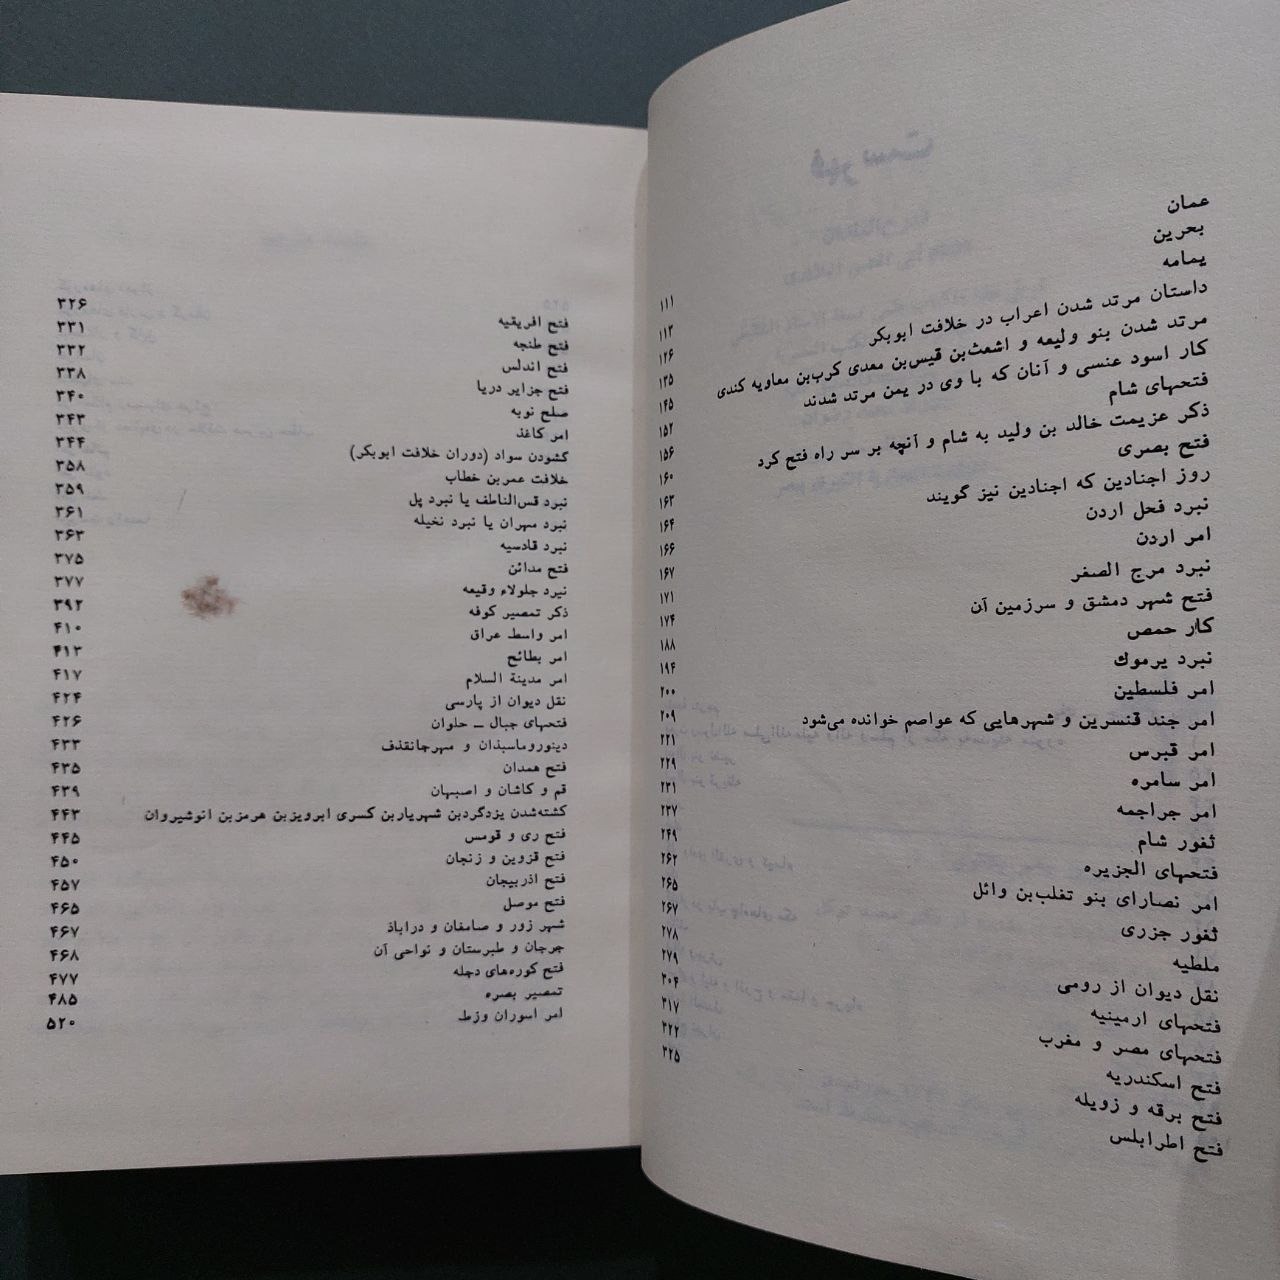 عمان ۱۱۱
بحرین ۱۱۳
یمامه ۱۲۶
داستان مرتد شدن اعراب در خلافت ابوبکر ۱۳۵
مرتد شدن بنو ولیعه و اشعث‌بن قیس‌بن معدی کرب‌بن معاویه کندی ۱۴۵
کار اسود عنسی و آنان که با وی در یمن مرتد شدند ۱۵۲
فتحهای شام ۱۵۶
ذکر عزیمت خالد بن ولید به شام و آنچه بر سر راه فتح کرد ۱۶۰
فتح بصری ۱۶۳
روز اجنادین که اجنادین نیز گویند ۱۶۴
نبرد فحل اردن ۱۶۶
امر اردن ۱۶۷
نبرد مرج الصفر ۱۷۱
فتح شهر دمشق و سرزمین آن ۱۷۴
کار حمص ۱۸۸
نبرد یرموك ۱۹۴
امر فلسطین ۲۰۰
امر جند قنسرین و شهرهایی که عواصم خوانده می‌شود ۲۰۹
امر قبرس ۲۲۱
امر سامره ۲۲۹
امر جراجمه ۲۳۱
ثغور شام ۲۳۷
فتحهای الجزیره ۲۴۹
امر نصارای بنو تغلب‌بن وائل ۲۶۲
ثغور جزری ۲۶۵
ملطیه ۲۶۷
نقل دیوان از رومی ۲۷۸
فتحهای ارمینیه ۲۷۹
فتحهای مصر و مغرب ۳۰۴
فتح اسکندریه ۳۱۷
فتح برقه و زویله ۳۲۲
فتح اطرابلس ۳۲۵
فتح افریقیه ۳۲۶
فتح طنجه ۳۳۱
فتح اندلس ۳۳۲
فتح جزایر دریا ۳۳۸
صلح نوبه ۳۴۰
امر کاغذ ۳۴۳
گشودن سواد (دوران خلافت ابوبکر) ۳۴۴
خلافت عمربن خطاب ۳۵۸
نبرد قس‌الناطف یا نبرد پل ۳۵۹
نبرد مهران یا نبرد نخیله ۳۶۱
نبرد قادسیه ۳۶۳
فتح مدائن ۳۷۵
نبرد جلولاء وقیعه ۳۷۷
ذکر تمصیر کوفه ۳۹۲
امر واسط عراق ۴۱۰
امر بطائح ۴۱۳
امر مدینة السلام ۴۱۷
نقل دیوان از پارسی ۴۲۴
فتحهای جبال ــ حلوان ۴۲۶
دینوروماسبذان و مهرجانقذف ۴۳۳
فتح همدان ۴۳۵
قم و کاشان و اصبهان ۴۳۹
کشته‌شدن یزدگردبن شهریاربن کسری ابرویزبن هرمزبن انوشیروان ۴۴۳
فتح ری و قومس ۴۴۵
فتح قزوین و زنجان ۴۵۰
فتح اذربیجان ۴۵۷
فتح موصل ۴۶۵
شهر زور و صامغان و دراباذ ۴۶۷
جرجان و طبرستان و نواحی آن ۴۶۸
فتح کوره‌های دجله ۴۷۷
تمصیر بصره ۴۸۵
امر اسوران وزط ۵۲۰